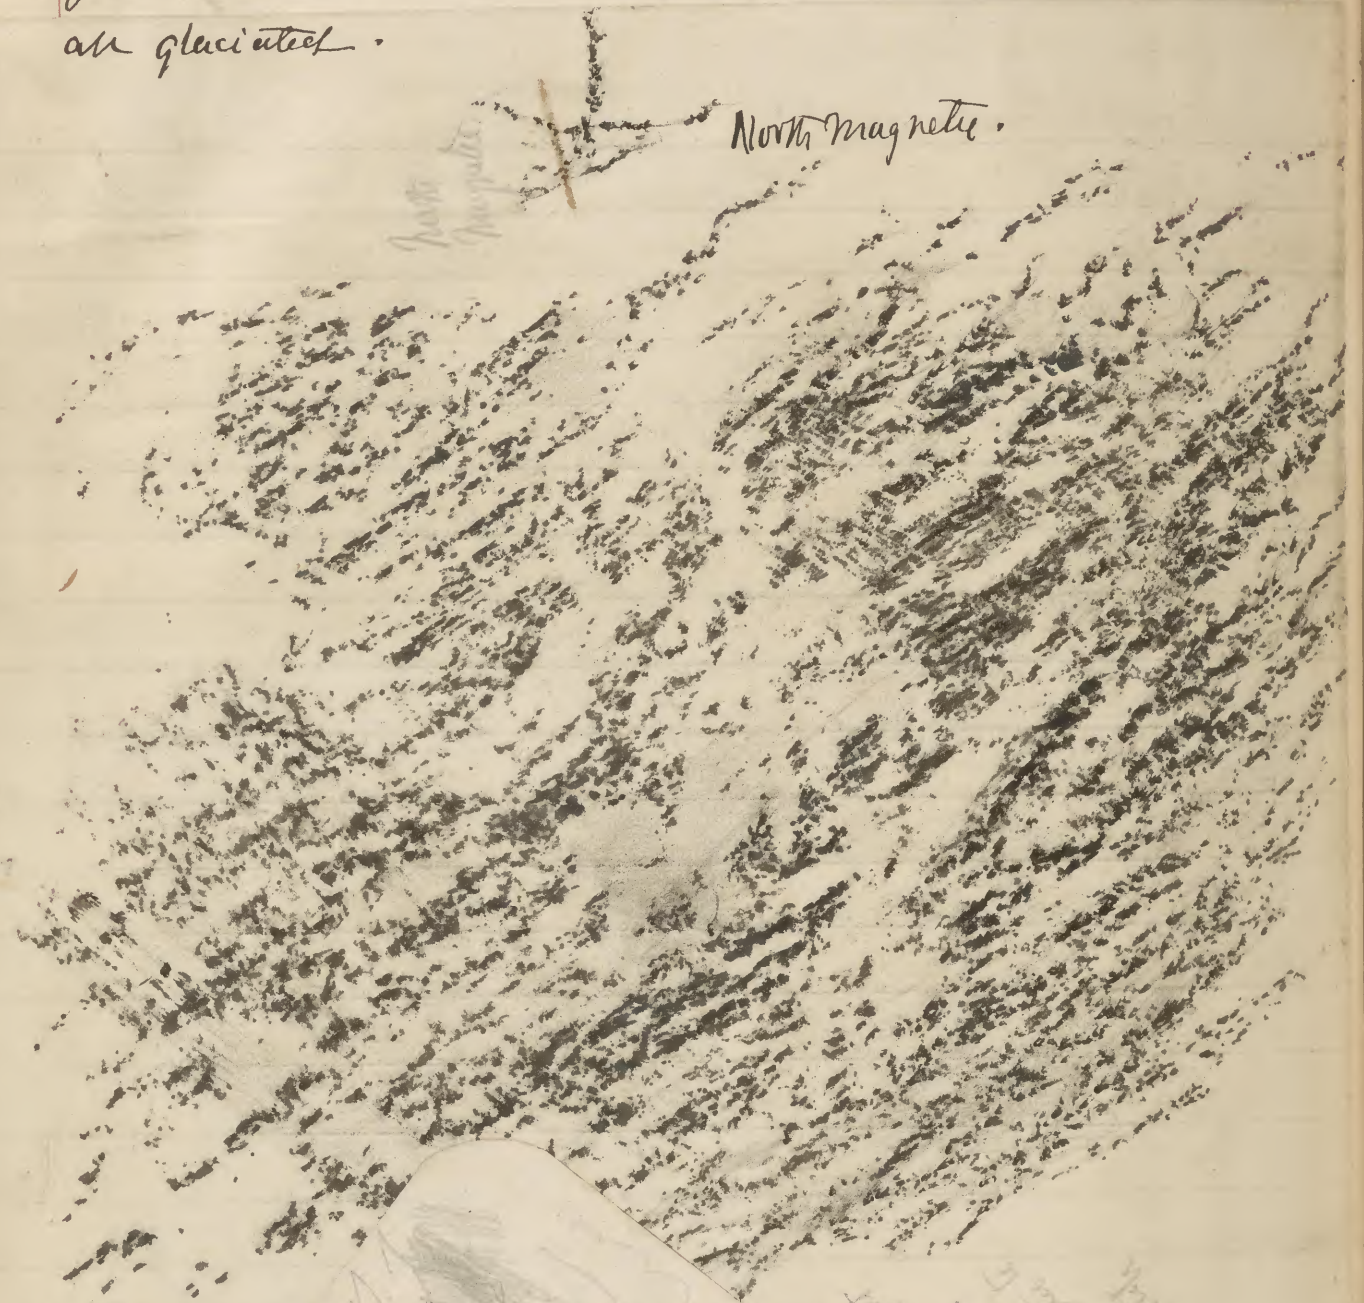 all glaciated.
North magnetic.
North
Magnetic